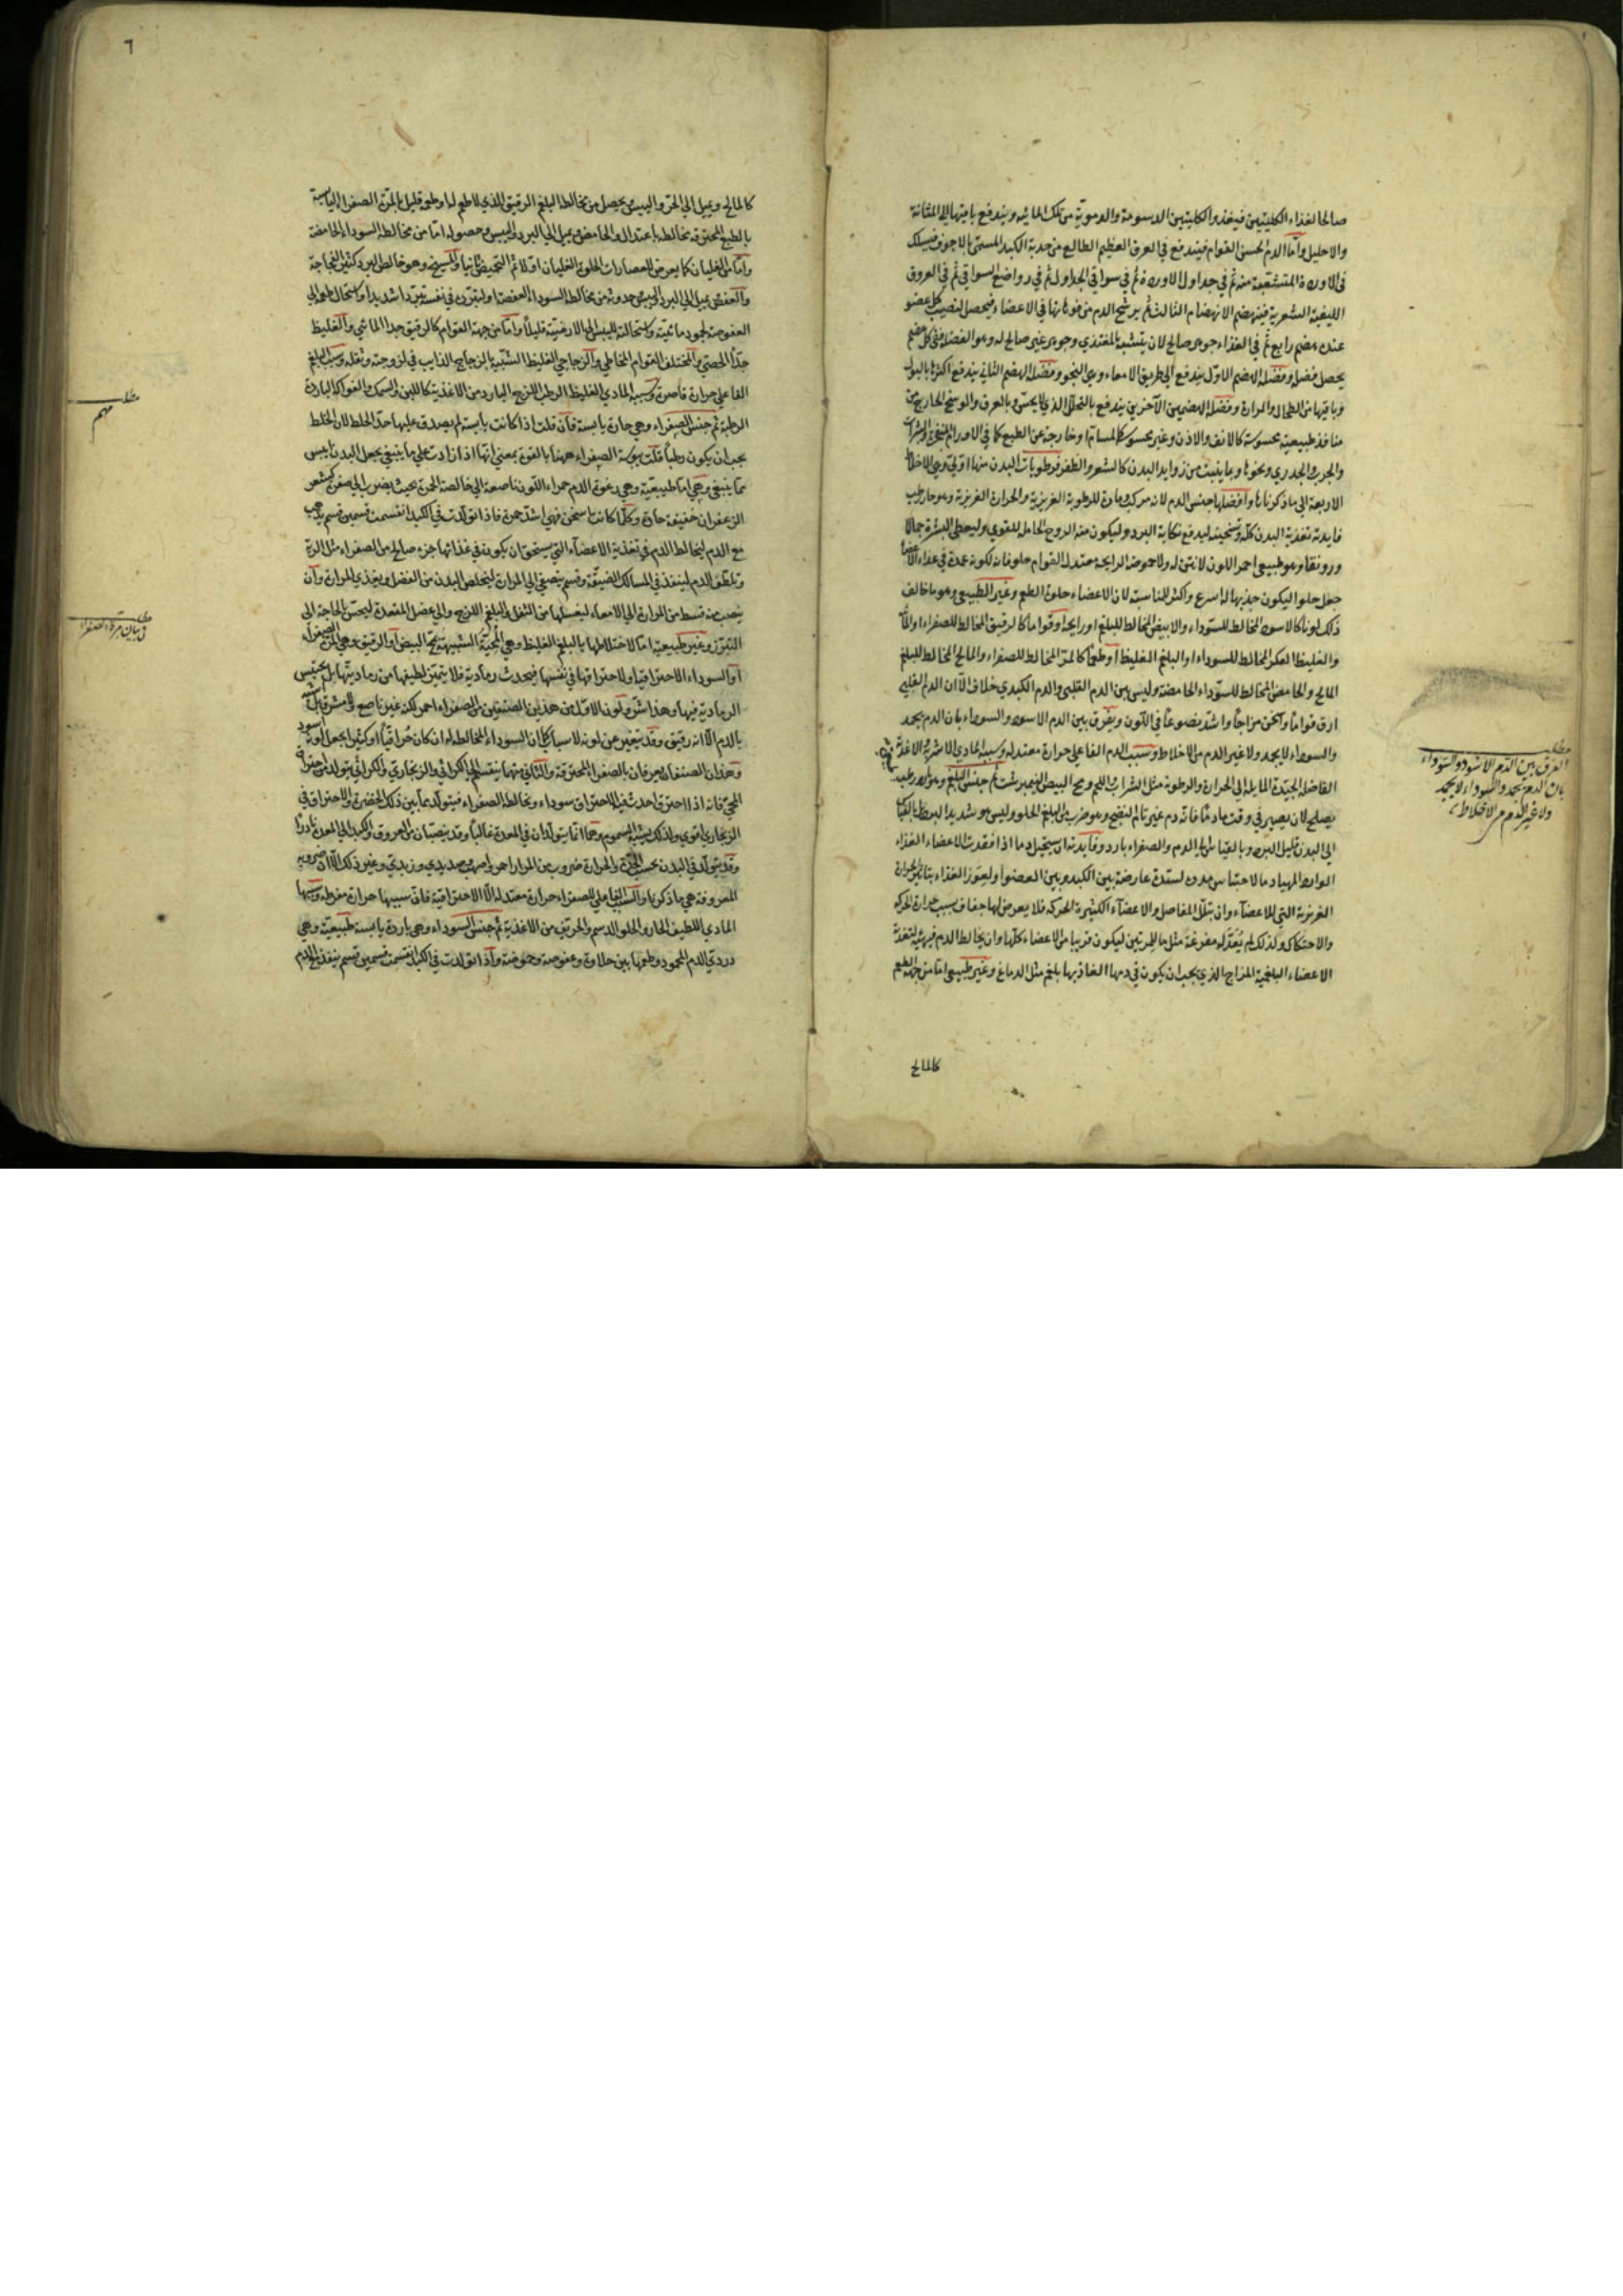 صالحا لغذاء الكليتين فيغذو الكليتين الدسومة والدموية من تلك المائية ويندفع باقيها الى المثانة
والاحليل واما الدم الحسن القوام فيندفع في العرق العظيم الطالع من حدبة الكبد المسمى بالاجوف فيسلك
في الاوردة المتشعبة منه ثم في جداول الاوردة ثم في سواقي الجداول ثم في رواضع السواقي ثم في العروق
الليفية الشعرية فينهضم الانهضام الثالث ثم يرشح الدم من فوهاتها في الاعضاء فيحصل لنصيب كل عضو
عنده هضم رابع ثم في الغذاء جوهر صالح لان يتشبه بالمغتذي وجوهر غير صالح له وهو الفضلة ففي كل هضم
يحصل فضل وفضلة الهضم الاول يندفع الى طريق الامعاء وهي النجو وفضلة الهضم الثاني يندفع اكثرها بالبول
وباقيها من الطحال والمرارة وفضلة الهضمين الآخرين يندفع بالتحلل الذي لا يحس وبالعرق والوسخ الخارج من
منافذ طبيعية محسوسة كالانف والاذن وغير محسوسة كالمسام او خارجة عن الطبع كما في الاورام المنفجرة والبثرات
والجرب والجدري ونحوها وبما ينبت من زوايد البدن كالشعر والظفر فرطوبات البدن منها اولى وهي الاخلاط
الاربعة التي ما ذكرناها وافضلها جنس الدم لانه مركب ومادة للرطوبة الغريزية والحرارة الغريزية وهو حار رطب
فايدته تغذية البدن كله وتسخينه ليدفع نكاية البرد وليكون منه الروح الحامل للقوي وليعطي البشرة جمالا
ورونقا وهو طبيعي احمر اللون لا نتن له ولا حموضة الرايحة معتدل القوام حلو فانه لكونه عمدة في غذاء الاعضاء
جعل حلوا ليكون جذبها له اسرع واكثر للمناسبة لان الاعضاء حلوة الطعم وغير الطبيعي وهو ما خالف
ذلك لونا كالاسود المخالط للسوداء والابيض المخالط للبلغم او رايحة او قواما كالرقيق المخالط للصفراء او المائية
والغليظ العكر المخالط للسوداء او البلغم الغليظ او طعما كالمر المخالط للصفراء والمالح المخالط للبلغم
المالح والحامض المخالط للسوداء الحامضة وليس بين الدم القلبي والدم الكبدي خلاف الا ان الدم القلبي
ارق قواما واسخن مزاجا واشد نصوعا في اللون ويفرق بين الدم الاسود والسوداء بان الدم يجمد
والسوداء لا يجمد ولا غير الدم من الاخلاط وسبب الدم الفاعلي حرارة معتدلة وسببه المادي الاشربة والاغذية
الفاضلة الجيدة المايلة الى الحرارة والرطوبة مثل الشراب واللحم ومح البيض النيمبرشت ثم جنس البلغم وهو بارد رطب
يصلح لان يصير في وقت ما دما فانه دم غير تام النضج وهو ضرب من البلغم الحلو وليس هو شديد البرد بالقياس
الى البدن قليل البرد وبالقياس الى الدم والصفراء بارد وفايدته ان يستحيل دما اذا فقدت الاعضاء الغذاء
الوارد المهيا دما لاحتباس مدده لسدة عارضة بين الكبد وبين العضو او لعوز الغذاء بتاثير الحرارة
الغريزية التي للاعضاء وان تبلل المفاصل والاعضاء الكثيرة الحركة فلا يعرض لها جفاف بسبب حرارة الحركة
والاحتكاك ولذلك لم يعد له مفرغة مثل ما للمرتين ليكون قريبا من الاعضاء كلها وان يخالط الدم فيهيئه لتغذية
الاعضاء البلغمية المزاج الذي يجب ان يكون في دمها الغاذيها بلغم مثل الدماغ وغير طبيعي اما من جهة الطعم
كالمالح
مطلب
الفرق بين الدم الاسود والسوداء
بان الدم يجمد والسوداء لا يجمد
ولا غير الدم من الاخلاط
٦
كالمالح ويميل الى الحر واليبس يحصل من مخالطة البلغم الرقيق الذي لا طعم له او طعمه قليل بالمرة الصفراء اليابسة
بالطبع المحترقة مخالطة باعتدال والحامض ويميل الى البرد واليبس وحصوله اما من مخالطة السوداء الحامضة
واما من الغليان كما يعرض للعصارات الحلوة الغليان اولا ثم التحميض ثانيا والمسيخ وهو خالص البرد كثير الفجاجة
والعفص يميل الى البرد واليبس حدوثه من مخالطة السوداء العفصة او لتبرده في نفسه تبردا شديدا واستحال طعمه الى
العفوصة لجمود مائيته واستحالته لليبس الى الارضية قليلا واما من جهة القوام كالرقيق جدا المائي والغليظ
جدا الجصي والمختلف القوام المخاطي والزجاجي الغليظ الشبيه بالزجاج الذايب في لزوجته وثقله وسبب البلغم
الفاعلي حرارة قاصرة وسببه المادي الغليظ الرطب اللزج البارد من الاغذية كاللبن والسمك والفواكه الباردة
الرطبة ثم جنس الصفراء وهي حارة يابسة فان قلت اذا كانت يابسة لم يصدق عليها حد الخلط لان الخلط
يجب ان يكون رطبا قلت يبوسة الصفراء ههنا بالقوة بمعنى انها اذا زادت على ما ينبغي يجعل البدن ايبس
مما ينبغي وهي اما طبيعية وهي رغوة الدم حمراء اللون ناصعة اي خالصة الحمرة بحيث يضرب الى صفرة كشعر
الزعفران خفيفة حادة وكلما كانت اسخن فهي اشد حمرة فاذا تولدت في الكبد انقسمت قسمين قسم يذهب
مع الدم ليخالط الدم في تغذية الاعضاء التي يستحق ان يكون في غذائها جزء صالح من الصفراء مثل الرية
وتلطف الدم لينفذ في المسالك الضيقة وقسم يتصفى الى المرارة ليتخلص البدن من الفضل ويغذي المرارة وان
ينصب منه قسط من المرارة الى الامعاء ليغسلها من الثفل والبلغم اللزج والى عضل المقعدة ليحس بالحاجة الى
التبرز وغير طبيعية اما لاختلاطها بالبلغم الغليظ وهي المحية الشبيهة بمح البيض او الرقيق وهي المرة الصفراء
او السوداء الاحتراقية او لاحتراقها في نفسها فيحدث رمادية فلا يتميز لطيفها من رماديتها بل يحتبس
الرمادية فيها وهذا اشر ولون الاول من هذين الصنفين من الصفراء احمر لكنه غير ناصع ولا مشرق بل اشبه
بالدم الا انه رقيق وقد يتغير عن لونه لاسباب كما ان السوداء المخالطة له ان كان حراقيا او كثيرا يجعل لونه اسود
وهذان الصنفان يعرفان بالصفراء المحترقة والثاني منهما ينقسم الى الكراثي والزنجاري والكراثي يتولد من احتراق
المحي فانه اذا احترق احدث فيه الاحتراق سوداء وخالط الصفراء فيتولد بما بين ذلك الخضرة والاحتراق في
الزنجاري اقوى ولذلك يشبه السموم وهما انما يتولدان في المعدة غالبا وقد ينصبان من العروق والكبد الى المعدة نادرا
وقد يتولد في البدن بحسب المزاج والحرارة ضروب من المرار احمر واصهب وصديدي وزبدي وغير ذلك الا ان ضروبه
المعروفة هي ما ذكرنا والسبب الفاعلي للصفراء حرارة معتدلة الا الاحتراقية فان سببها حرارة مفرطة وسببها
المادي اللطيف الحار والحلو الدسم والحريف من الاغذية ثم جنس السوداء وهي باردة يابسة طبيعية وهي
دردي الدم المحمود وطعمها بين حلاوة وعفوصة وحموضة واذا تولدت في الكبد انقسمت قسمين قسم ينفذ مع الدم
مطلب
مهم
مطلب
في بيان مرة الصفراء